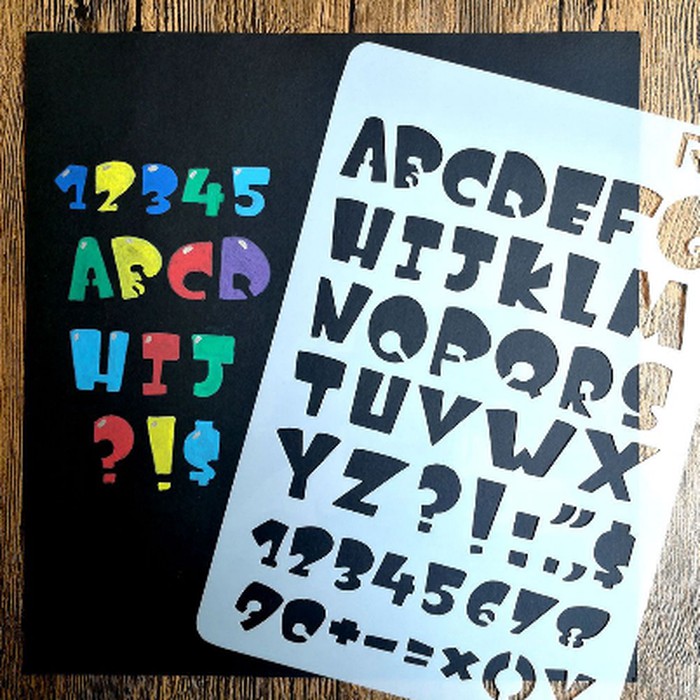 12345
ABCD
HIJ
?!$
ABCDEFG
HIJKLM
NOPQRS
TUVWX
YZ?!:;"$
12345678
90+-=×()